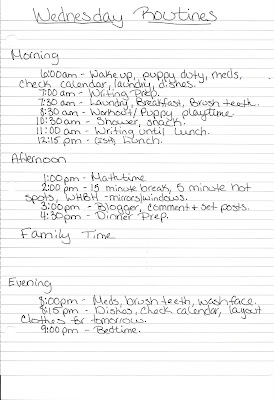 Wednesday Routines
Morning
6:00am - Wake up, puppy duty, meds,
check calendar, laundry, dishes.
7:00am - Writing Prep.
7:30am - Laundry, Breakfast, Brush teeth.
8:30am - Workout/Puppy playtime.
10:30am - Shower, snack.
11:00am - Writing until Lunch.
12:15pm - Lunch.
Afternoon
1:00pm - Math time
2:00pm - 15 minute break, 5 minute hot
spots, WHBH - mirrors/windows.
3:00pm - Blogger, comment + set posts.
4:30pm - Dinner Prep.
Family Time
Evening
8:00pm - Meds, brush teeth, wash face.
8:15pm - Dishes, check calendar, layout
clothes for tomorrow.
9:00pm - Bedtime.